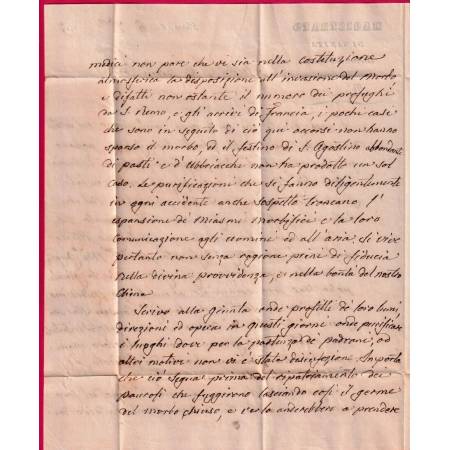 MAGISTRATO
DI SANITÀ
medici non pare che vi sia nella costituzione
atmosferica la disposizione all'invasione del Morbo
e difatti non ostante il numero dei profughi
da S. Remo, e gli arrivi di Francia, i pochi casi
che sono in seguito di ciò qui accorsi non hanno
sparso il morbo, ed il festino di S. Agostino abbondante
di pasti e d'Ubbriachi non ha prodotto un sol
Caso. Le purificazioni che si fanno diligentemente
in ogni accidente anche sospetto troncano l'
espansione de' Miasmi Morbifici e la loro
comunicazione agli uomini ed all'aria. Si vive
pertanto non senza ragione pieni di fiducia
nella divina provvidenza, e nella bontà del nostro
Clima
Scrivo alla giunta onde profitti de' loro lumi,
direzioni ed opera in questi giorni onde purificare
i luoghi dove per la partenza de' padroni, ed
altri motivi non vi è stata disinfezione. Importa
che ciò segua prima del ripatriamento dei
paurosi che fuggirono lasciando così il germe
del morbo chiuso, e ve lo anderebbero a prendere